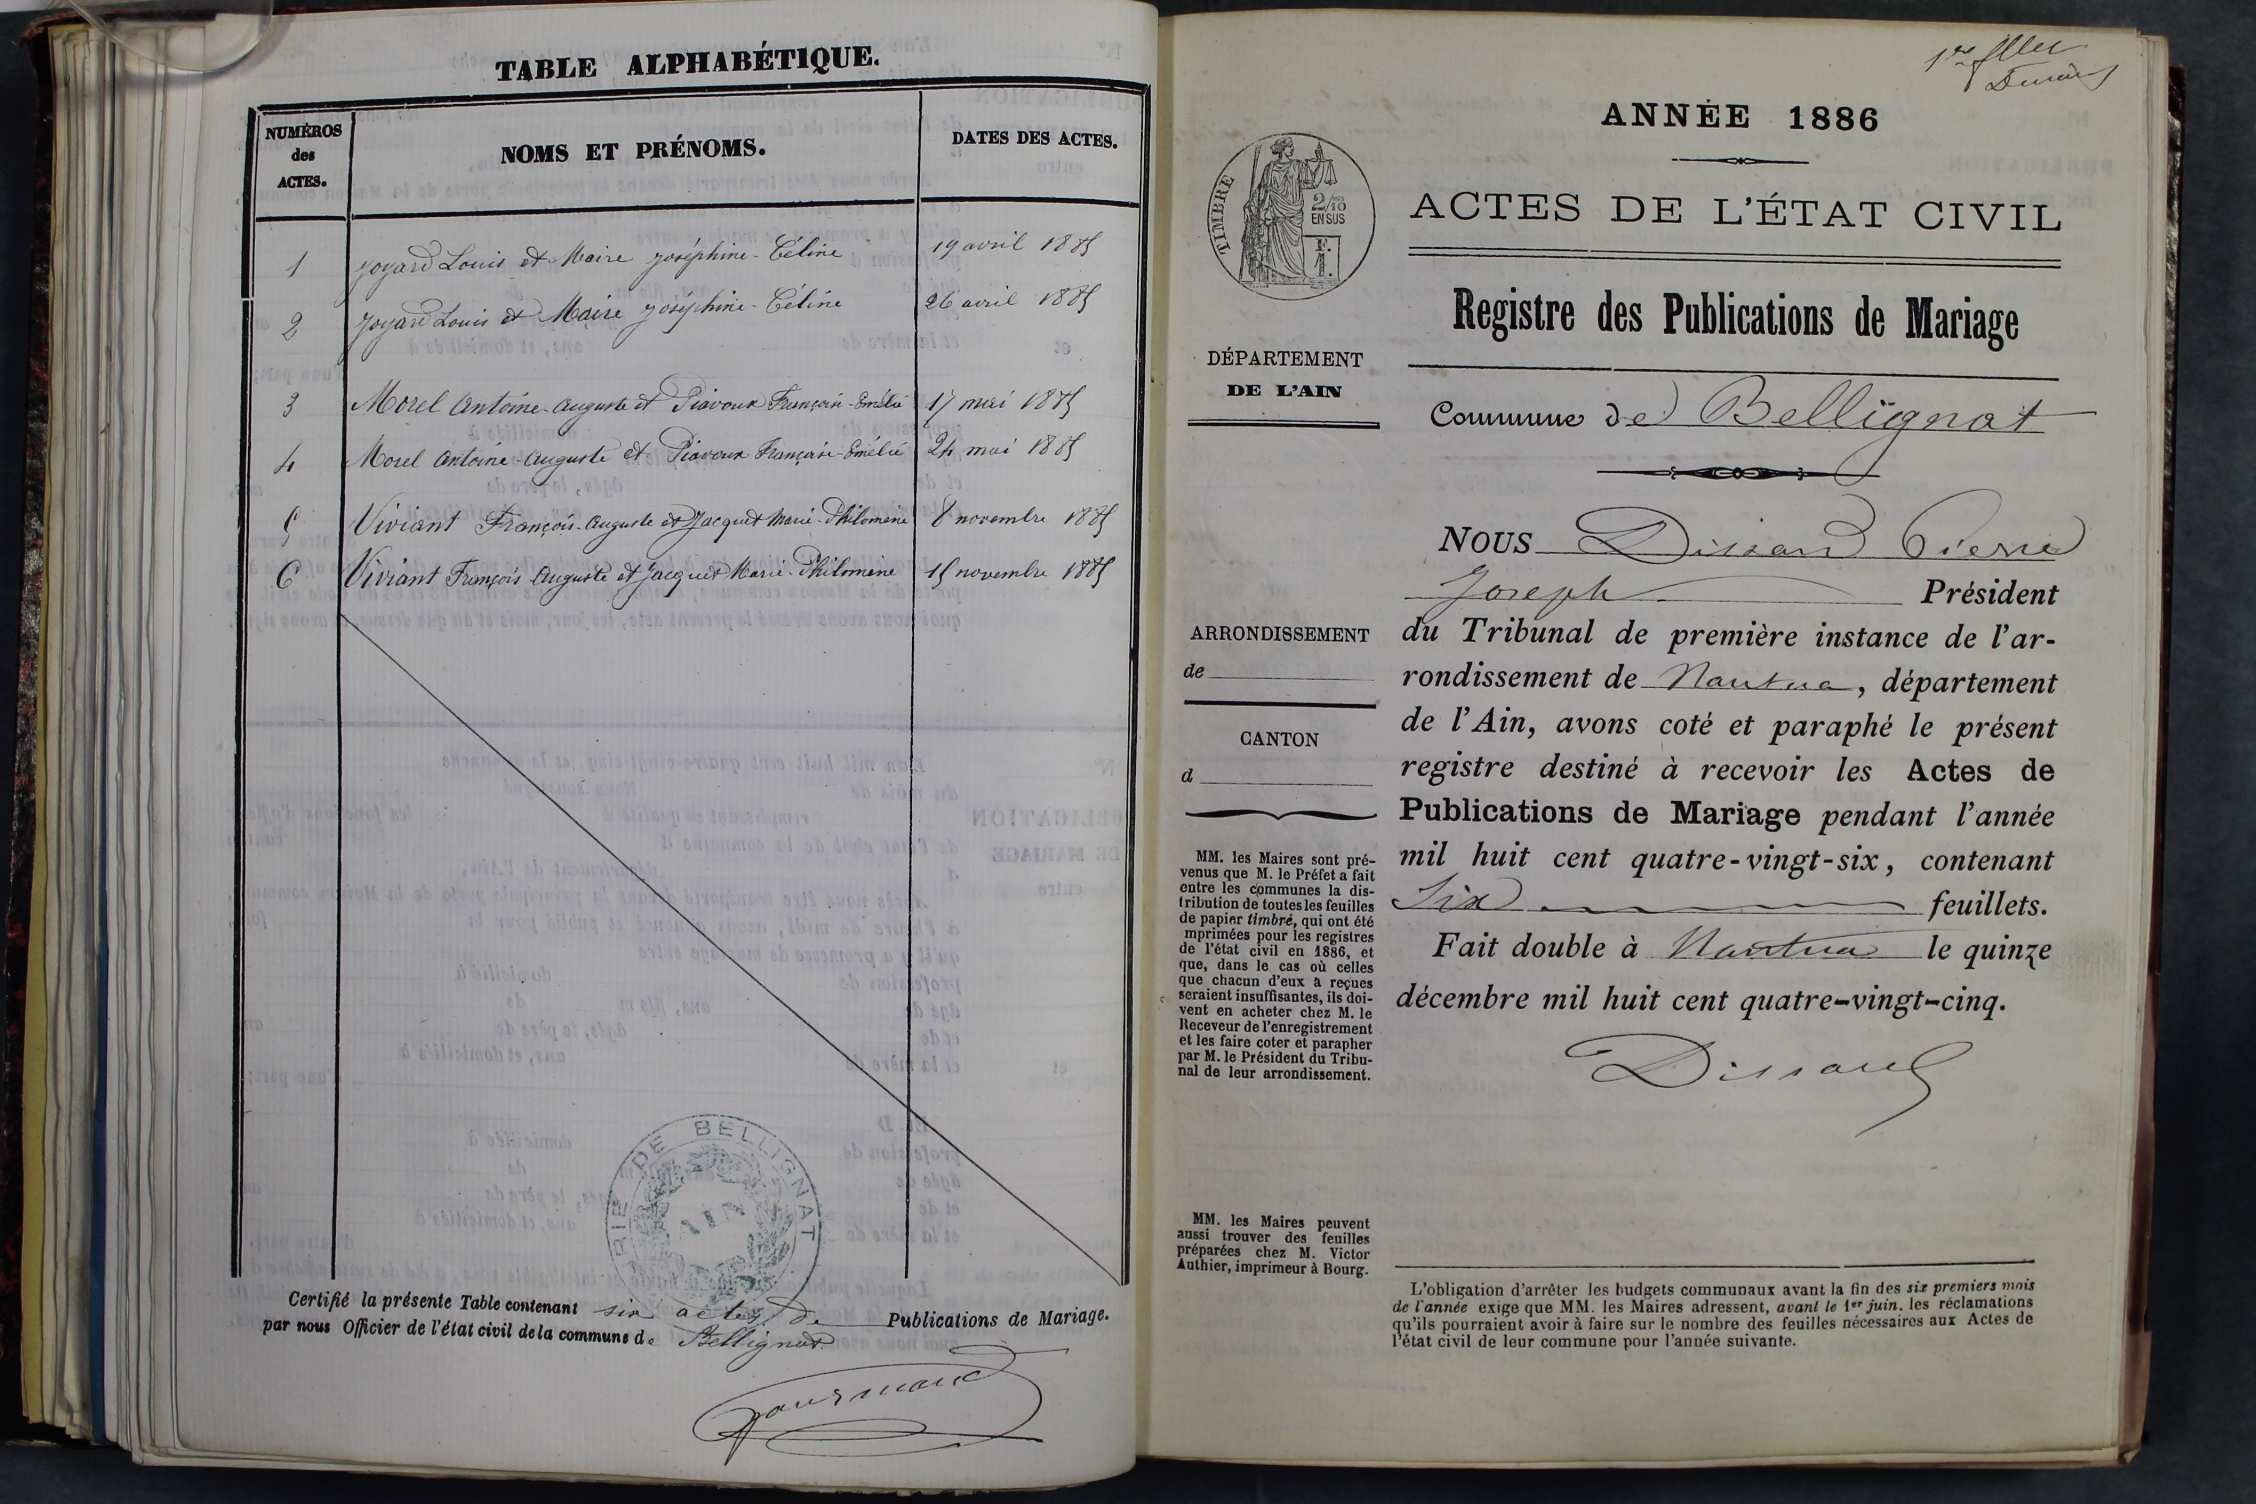 TABLE ALPHABÉTIQUE.
NUMÉROS
des
ACTES.
NOMS ET PRÉNOMS.
DATES DES ACTES.
1 Joyard Louis et Maire Joséphine-Céline 19 avril 1885
2 Joyard Louis et Maire Joséphine-Céline 26 avril 1885
3 Morel Antoine-Auguste et Piavoux Françoise-Emélie 17 mai 1885
4 Morel Antoine-Auguste et Piavoux Françoise-Emélie 24 mai 1885
5 Viviant François-Auguste et Jacquet Marie-Philomène 8 novembre 1885
6 Viviant François Auguste et Jacquet Marie-Philomène 15 novembre 1885
MAIRIE DE BELLIGNAT
AIN
Certifié la présente Table contenant six actes de Publications de Mariage.
par nous Officier de l'état civil de la commune de Bellignat
Gourmand
1er fllet
ANNÉE 1886
TIMBRE
2/10
EN SUS
ACTES DE L'ÉTAT CIVIL
Registre des Publications de Mariage
DÉPARTEMENT
DE L'AIN
Commune de Bellignat
NOUS Dissard Pierre
Joseph Président
du Tribunal de première instance de l'ar-
rondissement de Nantua, département
de l'Ain, avons coté et paraphé le présent
registre destiné à recevoir les Actes de
Publications de Mariage pendant l'année
mil huit cent quatre-vingt-six, contenant
Six feuillets.
Fait double à Nantua le quinze
décembre mil huit cent quatre-vingt-cinq.
Dissard
ARRONDISSEMENT
de
CANTON
d
MM. les Maires sont pré-
venus que M. le Préfet a fait
entre les communes la dis-
tribution de toutes les feuilles
de papier timbré, qui ont été
mprimées pour les registres
de l'état civil en 1886, et
que, dans le cas où celles
que chacun d'eux a reçues
seraient insuffisantes, ils doi-
vent en acheter chez M. le
Receveur de l'enregistrement
et les faire coter et parapher
par M. le Président du Tribu-
nal de leur arrondissement.
MM. les Maires peuvent
aussi trouver des feuilles
préparées chez M. Victor
Authier, imprimeur à Bourg.
L'obligation d'arrêter les budgets communaux avant la fin des six premiers mois
de l'année exige que MM. les Maires adressent, avant le 1er juin, les réclamations
qu'ils pourraient avoir à faire sur le nombre des feuilles nécessaires aux Actes de
l'état civil de leur commune pour l'année suivante.